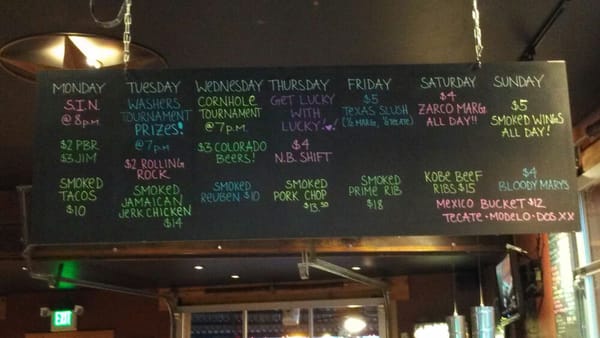 MONDAY
S.I.N.
@ 8p.m.
$2 PBR
$3 JIM
SMOKED
TACOS
$10
TUESDAY
WASHERS
TOURNAMENT
PRIZES!
@ 7p.m.
$2 ROLLING
ROCK
SMOKED
JAMAICAN
JERK CHICKEN
$14
WEDNESDAY
CORNHOLE
TOURNAMENT
@ 7p.m.
$3 COLORADO
BEERS!
SMOKED
REUBEN $10
THURSDAY
GET LUCKY
WITH
LUCKY!
$4
N.B. SHIFT
SMOKED
PORK CHOP
$13.50
FRIDAY
$5
TEXAS SLUSH
(½ MARG, ½ TECATE)
SMOKED
PRIME RIB
$18
SATURDAY
$4
ZARCO MARG.
ALL DAY!!
KOBE BEEF
RIBS $15
SUNDAY
$5
SMOKED WINGS
ALL DAY!
$4
BLOODY MARYS
MEXICO BUCKET $12
TECATE · MODELO · DOS XX
EXIT